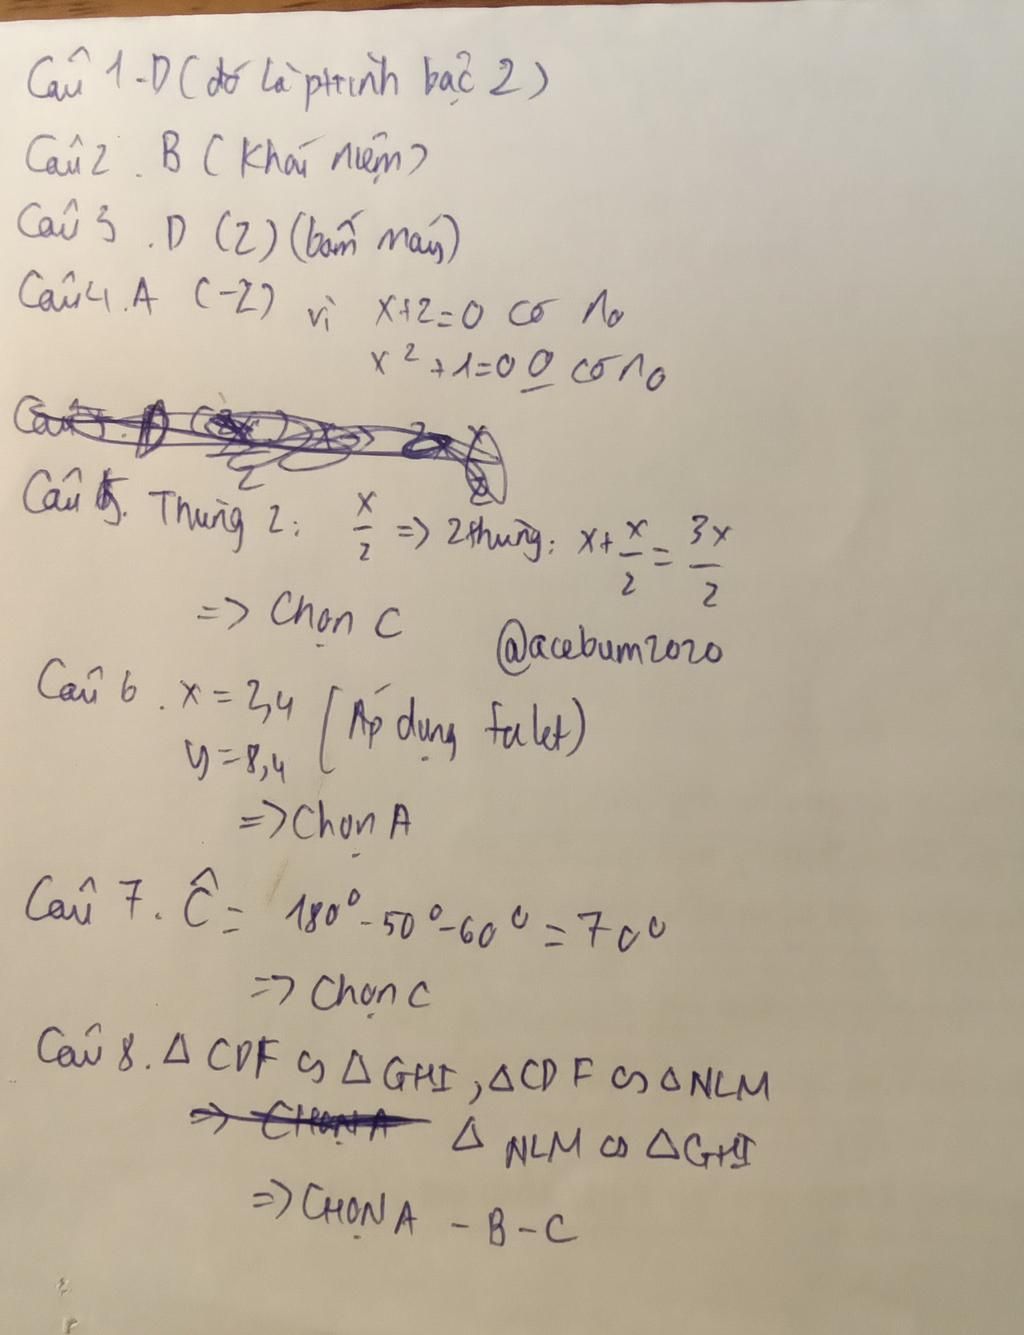 Câu 1-D (đó là ptrình bậc 2)
Câu 2. B (Khái niệm)
Câu 3. D (2) (bấm máy)
Câu 4. A (-2) vì x+2=0 có n₀
x²+1=0 0 có n₀
Câu 5. Thùng 2: x/2 => 2 thùng: x+x/2=3x/2
=> Chọn C
@acebum2020
Câu 6. x=2,4 (Áp dụng talet)
y=8,4
=> Chọn A
Câu 7. Ĉ= 180°-50°-60°=70°
=> Chọn C
Câu 8. Δ CDF ∽ Δ GHI, Δ CDF ∽ Δ NLM
=> CHỌN A Δ NLM ∽ Δ GHI
=> CHỌN A - B - C